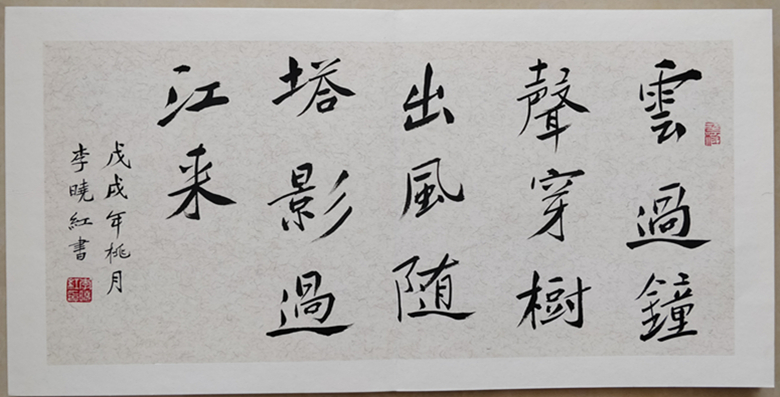 雲過鐘
聲穿樹
出風随
塔影過
江来
戊戌年桃月
李曉紅書